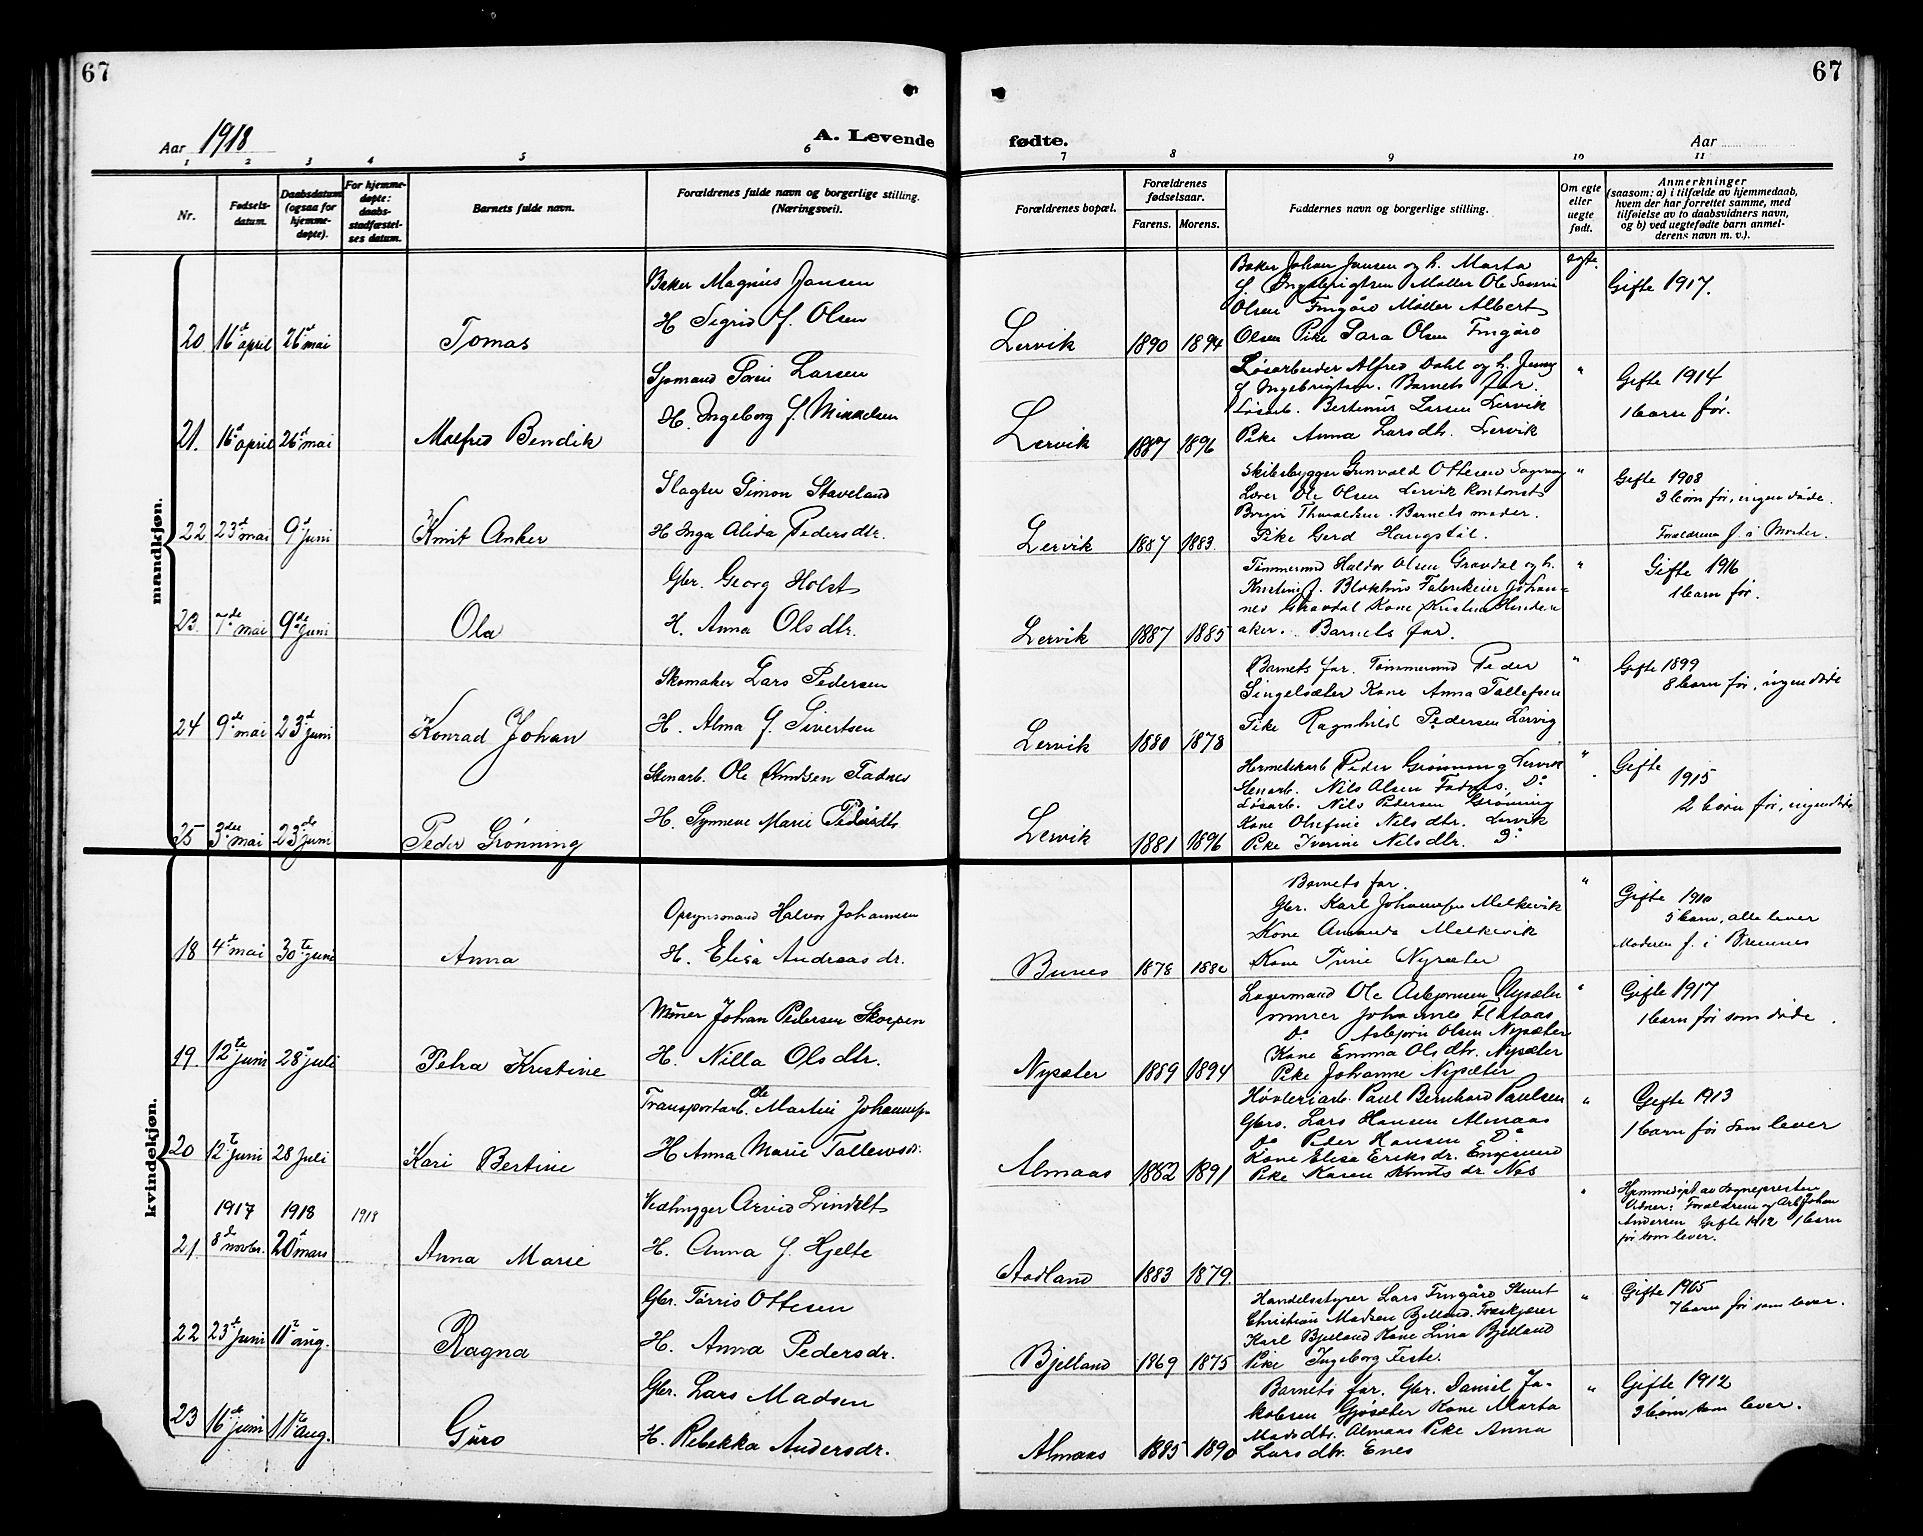 67
67
Aar 1918
A. Levende
fødte.
Aar
1 2 3 4 5 6 7 8 9 10 11
Nr.
Fødsels-
datum.
Daabsdatum
(ogsaa for
hjemme-
døpte).
For hjemme-
døpte:
daabs-
stadfæstel-
ses datum.
Barnets fulde navn.
Forældrenes fulde navn og borgerlige stilling.
(Næringsvei).
Forældrenes bopæl.
Forældrenes
fødselsaar.
Farens. Morens.
Faddernes navn og borgerlige stilling.
Om egte
eller
uegte
født.
Anmerkninger
(saasom: a) i tilfælde av hjemmedaab,
hvem der har forrettet samme, med
tilføielse av to daabsvidners navn,
og b) ved uegtefødte barn anmel-
derens navn m. v.).
mandkjøn.
20. 16de april 26de mai
Tomas
Baker Magnus Jansen
H. Sigrid f. Olsen
Lervik 1890 1894
Baker Johan Jansen og h. Marta
f. Ingebrigtsen Møller Ole
Olsen Fingaro Møller Albert
Olsen Pike Sara Olsen Fingaro
egte.
Gifte 1917.
21. 16de april 26de mai
Malfred Bendik
Sjømand Larsen
H. Ingeborg f. Mikkelsen
Lervik 1887 1896
Løsarbeider Alfred Dahl og h. Jenny
f. Ingebrigtsen. Barnets far.
Løsarb. Bertinus Larsen Lervik
Pike Anna Larsdtr. Lervik
"
Gifte 1914
1 barn før.
22 23de mai 9de juni
Knut Anker
Slagter Simon Staveland
H Inga Alida Pedersdtr.
Lervik 1887 1883.
Skibsbygger Gunvald Ottesen Sagvaag
Lærer Ole Olsen Lervik Kontorist
Borger Thvaldsen. Barnets moder.
Pike Gerd Haugstøl.
"
Gifte 1908
3 børn før, ingen døde.
Forældrene f. i Moster.
23. 7de mai 9de juni
Ola
Gbr. Georg Holst
H. Anna Olsdtr.
Lervik 1887 1885
Tømmermd Haldor Olsen Gravdal og h.
Kristine f. Blokhus Fabrikeier Johan-
nes Gravdal Kone Kristine
aker. Barnets far.
"
Gifte 1916
1 barn før.
24 9de mai 23de juni
Konrad Johan
Skomaker Lars Pedersen
H. Alma f. Sivertsen
Lervik 1880 1878
Barnets far. Tømmermd Peder
Singelsæter Kone Anna Tollefsen
Pike Ragnhild Pedersen Lervig
"
Gifte 1899
8 barn før, ingen døde
25 3die mai 23de juni
Peder Grønning
Stenarb. Ole Knudsen Fadnes
H. Synneve Marie Pedersdtr
Lervik 1881 1896
Hermetikarb Peder Grønning Lervik
Stenarb. Nils Alsen Fadnes. Do
Løsarb. Nils Pedersen Grøning
Kone Olufine Nilsdtr. Lervik
Pike Iverine Nilsdtr. Do
"
Gifte
1915
2 børn før, ingen døde
kvindekjøn.
18 4de mai 30te juni
Anna
Opsynsmand Halvor Johannesen
H. Elisa Andreasdr.
Bunes 1878 1882
Barnets far.
Gbr. Karl Johannesen Melkevik
Kone Amanda Melkevik
Kone Trine Nysæter
"
Gifte 1910
5 barn, alle lever
Moderen f. i Bremnes
19. 12te juni 28de juli
Petra Kristine
Minør Johan Pedersen Skorpen
H. Nilla Olsdtr.
Nysæter 1889 1894
Lagermand Ole Asbjørnsen Nysæter
murer Johannes Flataas
Do Asbjørn Olsen Nysæter
Kone Emma Olsdtr. Nysæter
Pike Johanne Nysæter
"
Gifte 1917
1 barn før som døde.
20 12te juni 28 juli
Kari Bertine
Transportarb. Ole Martin Johannesen
H Anna Marie
Almaas 1882 1891
Høvleriarb. Paul Bernhard Paulsen
Gbrs. Lars Hansen Almaas
Do Peder Hansen Do
Kone Elisa Eriksdr. Engesund
Pike Karen Knutsdr. Nes
"
Gifte 1913
1 barn før som lever
1917 1918 1918
21. 8de novbr. 20de mars
Anna Marie
Veibygger Arvid Lindelt
H. Anna f. Hjelte
Aadland 1883 1879
"
Hjemmedøpt av sognepresten
Vidner: Forældrene og Arb. Johan
Andersen Gifte 1912 1 barn
før som lever.
22 23de juni 11te aug.
Ragna
Gbr. Tørris Ottesen
H. Anna Pedersdr.
Bjelland 1869 1875
Handelsstyrer Lars Fingaro Student
Christian Madsen Bjelland. Træskjærer
Karl Bjelland Kone Lina Bjelland
Pike Ingeborg Feste.
"
Gifte 1905
7 barn før som lever.
23 16de juni 11te aug.
Guro
Gbr. Lars Madsen
H. Rebekka Andersdr.
Almaas 1885 1890
Barnets far. Gbr. Daniel Ja-
kobsen Gjøsæter Kone Marta
Madsdtr. Almaas Pike Anna
Larsdtr. Enes
"
Gifte 1912
3 børn som lever.